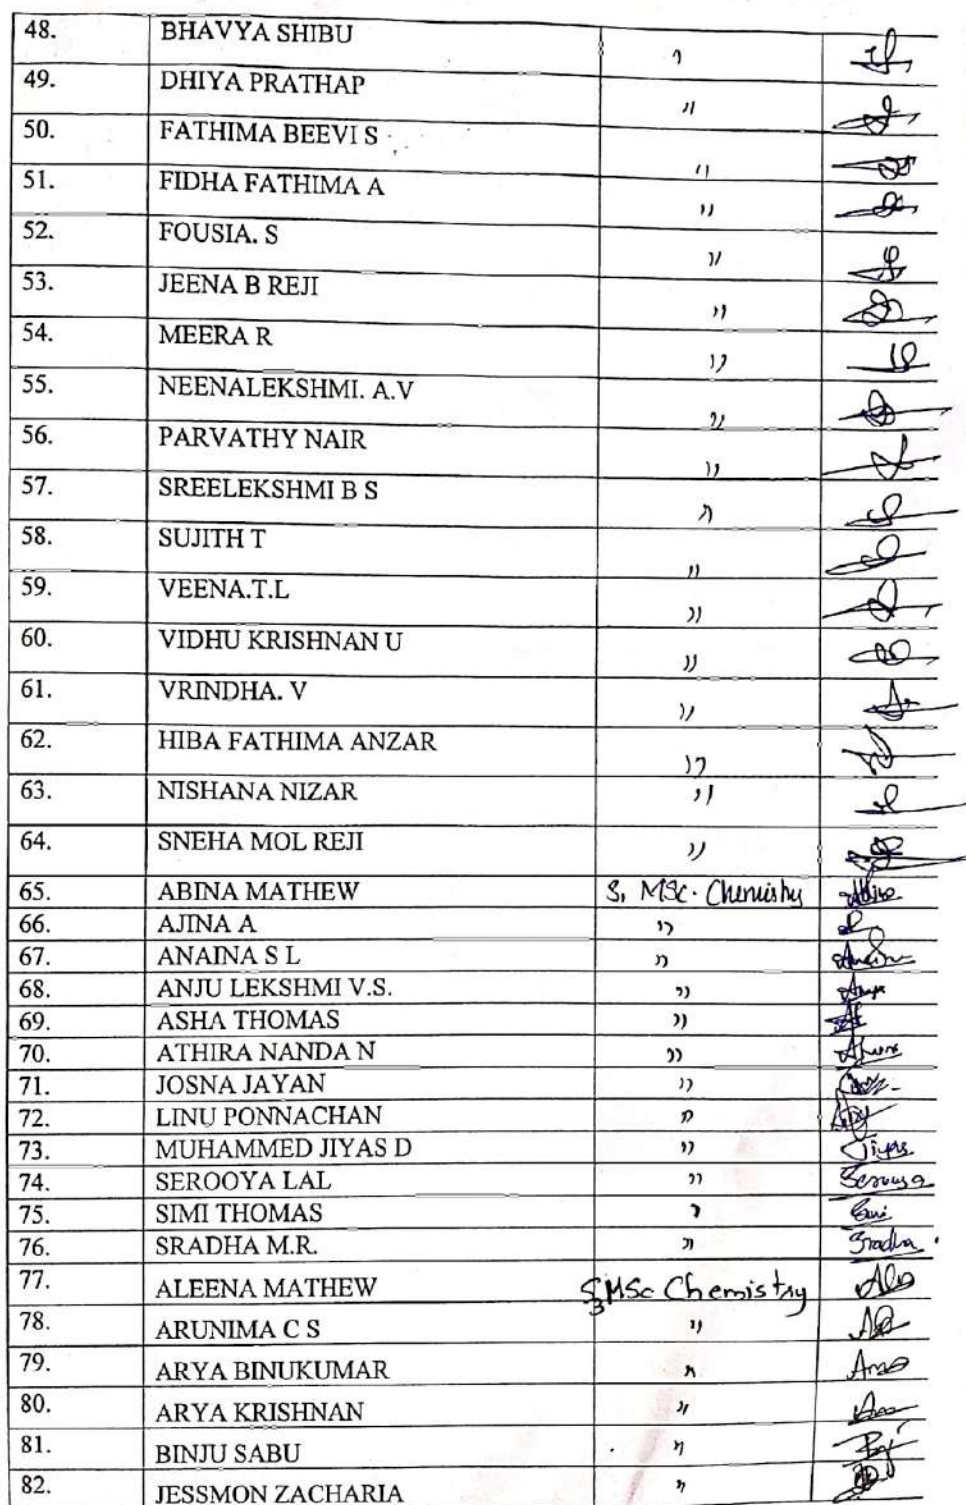 48. BHAVYA SHIBU "
49. DHIYA PRATHAP "
50. FATHIMA BEEVI S "
51. FIDHA FATHIMA A "
52. FOUSIA. S "
53. JEENA B REJI "
54. MEERA R "
55. NEENALEKSHMI. A.V "
56. PARVATHY NAIR "
57. SREELEKSHMI B S "
58. SUJITH T "
59. VEENA.T.L "
60. VIDHU KRISHNAN U "
61. VRINDHA. V "
62. HIBA FATHIMA ANZAR "
63. NISHANA NIZAR "
64. SNEHA MOL REJI "
65. ABINA MATHEW S1 MSc. Chemistry
66. AJINA A "
67. ANAINA S L "
68. ANJU LEKSHMI V.S. "
69. ASHA THOMAS "
70. ATHIRA NANDA N "
71. JOSNA JAYAN "
72. LINU PONNACHAN "
73. MUHAMMED JIYAS D " Jiyas
74. SEROOYA LAL " Serooya
75. SIMI THOMAS "
76. SRADHA M.R. " Sradha
77. ALEENA MATHEW S3 MSc Chemistry
78. ARUNIMA C S "
79. ARYA BINUKUMAR "
80. ARYA KRISHNAN "
81. BINJU SABU "
82. JESSMON ZACHARIA "